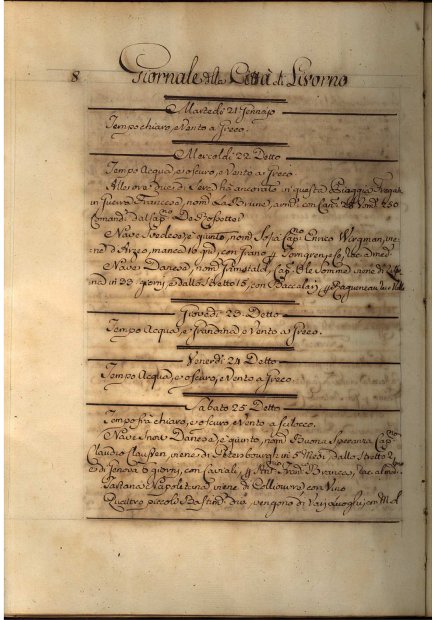 8 Giornale della Città di Livorno
Martedì 21 Gennajo
Tempo chiaro, e Vento a Greco.
Mercoldì 22 Detto
Tempo Acqua, e oscuro, e Vento a Greco.
All'ore due di Sera hà ancorato in questa Spiaggia Fregata
in Guerra Francese, nom. La Brune, arm. con Can. Vom. 250
Comand. dal Cap.no De Rossetto
Nave Svedese, è giunto, nom. Sofia Cap. Enrico Wergman,
manca 16 gni, con Grano
Nave Danese, nom. Cap. Ole Somme viene di
in 33 giorni, e dallo Stretto 15, con Baccalari,
Giovedì 23 Detto
Tempo Acqua, e Grandina, e Vento a Greco.
Venerdì 24 Detto
Tempo Acqua, e oscuro, e Vento a Greco
Sabato 25 Detto
Tempo frà chiaro, e oscuro e Vento a Scilocco.
Nave Snow Danese, è giunto, nom. Buona Speranza Cap.no
Claudio Claussen, viene di Petersbourgh in 5 Mesi, dallo Stretto
e di Genova 6 giorni, con Caviale,
Tartana Napoletana viene di Colliouvre con Vino
Quattro piccoli Bastim. vengono di Varj Luoghi, con M.d.